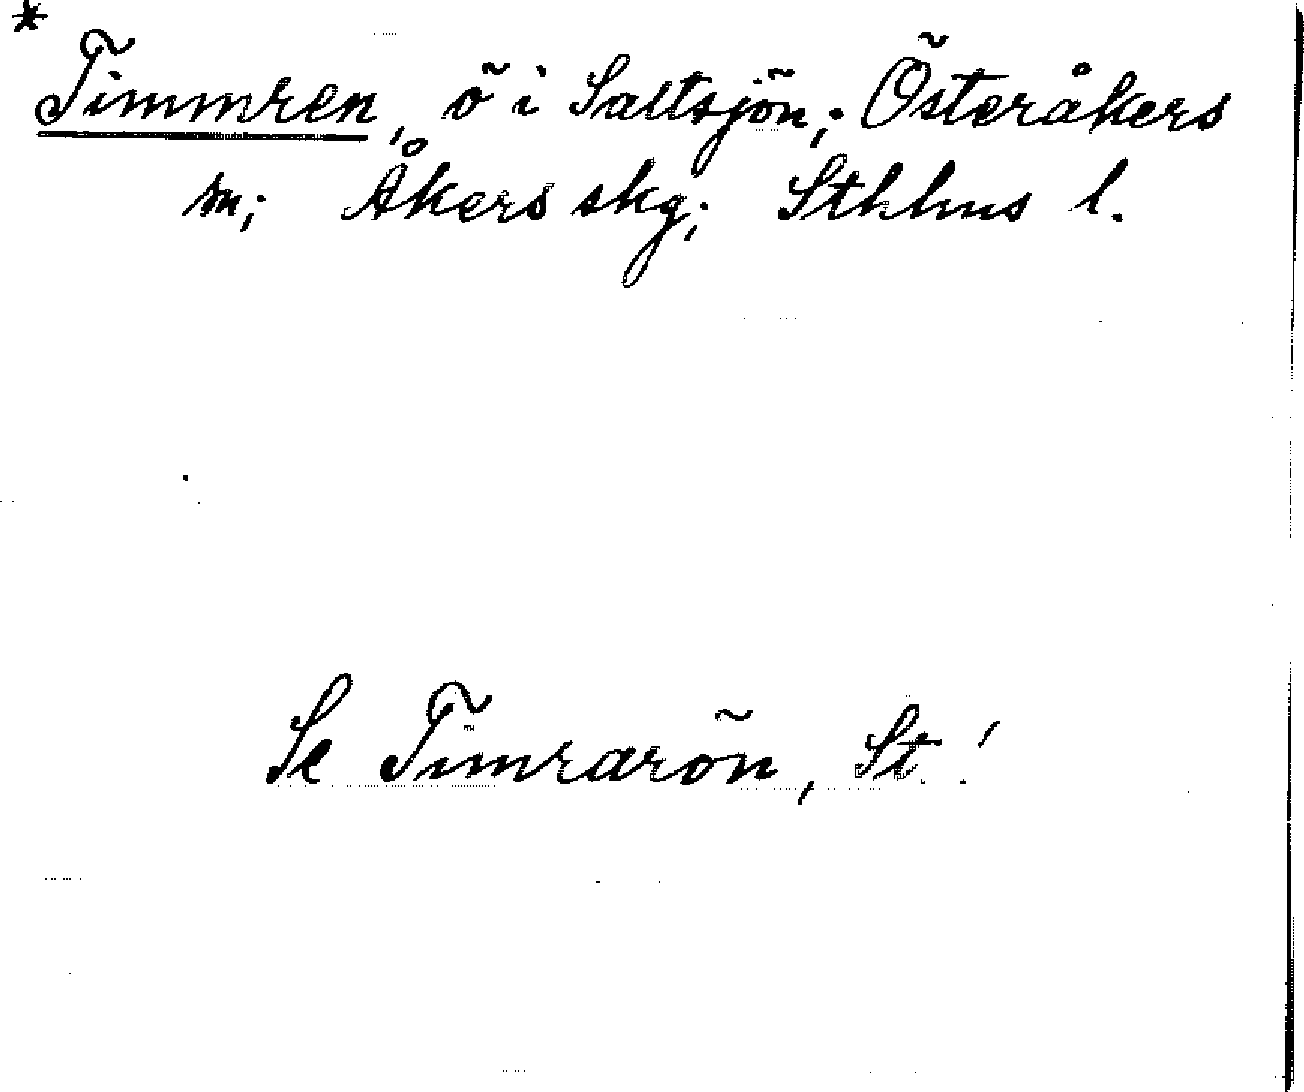 *
Timmren, ö i Saltsjön; Österåkers
sn; Åkers skg; Sthlms l.
Se Timrarön, St.!